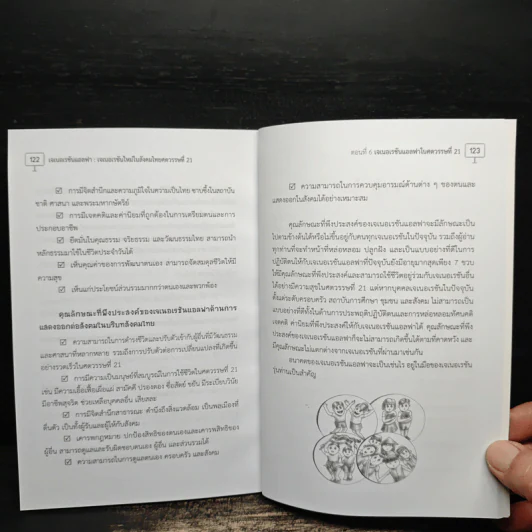 122
เจเนอเรชันแอลฟา : เจเนอเรชันใหม่ในสังคมไทยศตวรรษที่ 21
☑ การมีจิตสำนึกและความภูมิใจในความเป็นไทย ซาบซึ้งในสถาบัน
ชาติ ศาสนา และพระมหากษัตริย์
☑ การมีเจตคติและค่านิยมที่ถูกต้องในการเตรียมตนและการ
ประกอบอาชีพ
☑ ยึดมั่นในคุณธรรม จริยธรรม และวัฒนธรรมไทย สามารถนำ
หลักธรรมมาใช้ในชีวิตประจำวันได้
☑ เห็นคุณค่าของการพัฒนาตนเอง สามารถจัดสมดุลชีวิตให้มี
ความสุข
☑ เห็นแก่ประโยชน์ส่วนรวมมากกว่าตนเองและพวกพ้อง
คุณลักษณะที่พึงประสงค์ของเจเนอเรชันแอลฟาด้านการ
แสดงออกต่อสังคมในบริบทสังคมไทย
☑ ความสามารถในการดำรงชีวิตและปรับตัวเข้ากับผู้อื่นที่มีวัฒนธรรม
และศาสนาที่หลากหลาย รวมถึงการปรับตัวต่อการเปลี่ยนแปลงที่เกิดขึ้น
อย่างรวดเร็วในศตวรรษที่ 21
☑ การมีความเป็นมนุษย์ที่สมบูรณ์ในการใช้ชีวิตในศตวรรษที่ 21
เช่น มีความเอื้อเฟื้อเผื่อแผ่ สามัคคี ปรองดอง ซื่อสัตย์ ขยัน มีระเบียบวินัย
มีอาชีพสุจริต ช่วยเหลือบุคคลอื่น เสียสละ
☑ การมีจิตสำนึกสาธารณะ คำนึงถึงสิ่งแวดล้อม เป็นพลเมืองที่
ตื่นตัว เป็นทั้งผู้รับและผู้ให้กับสังคม
☑ เคารพกฎหมาย ปกป้องสิทธิของตนเองและเคารพสิทธิของ
ผู้อื่น สามารถดูแลและรับผิดชอบตนเอง ผู้อื่น และส่วนรวมได้
☑ ความสามารถในการดูแลตนเอง ครอบครัว และสังคม
ตอนที่ 6 เจเนอเรชันแอลฟาในศตวรรษที่ 21
123
☑ ความสามารถในการควบคุมอารมณ์ด้านต่าง ๆ ของตนและ
แสดงออกในสังคมได้อย่างเหมาะสม
คุณลักษณะที่พึงประสงค์ของเจเนอเรชันแอลฟาจะมีลักษณะเป็น
ไปตามข้างต้นได้หรือไม่ขึ้นอยู่กับคนทุกเจเนอเรชันในปัจจุบัน รวมถึงผู้อ่าน
ทุกท่านที่จะทำหน้าที่หล่อหลอม ปลูกฝัง และเป็นแบบอย่างที่ดีในการ
ปฏิบัติตนให้กับเจเนอเรชันแอลฟาที่ปัจจุบันยังมีอายุมากสุดเพียง 7 ขวบ
ให้มีคุณลักษณะที่พึงประสงค์และสามารถใช้ชีวิตอยู่ร่วมกับเจเนอเรชันอื่น
ได้อย่างมีความสุขในศตวรรษที่ 21 แต่หากบุคคลเจเนอเรชันในปัจจุบัน
ตั้งแต่ระดับครอบครัว สถาบันการศึกษา ชุมชน และสังคม ไม่สามารถเป็น
แบบอย่างที่ดีทั้งในด้านการประพฤติปฏิบัติตนและการหล่อหลอมทัศนคติ
เจตคติ ค่านิยมที่พึงประสงค์ให้กับเจเนอเรชันแอลฟาได้ คุณลักษณะที่พึง
ประสงค์ของเจเนอเรชันแอลฟาก็จะไม่สามารถเกิดขึ้นได้ตามที่คาดหวัง และ
มีคุณลักษณะไม่แตกต่างจากเจเนอเรชันที่ผ่านมาเช่นกัน
อนาคตของเจเนอเรชันแอลฟาจะเป็นเช่นไร อยู่ในมือของเจเนอเรชัน
รุ่นท่านเป็นสำคัญ